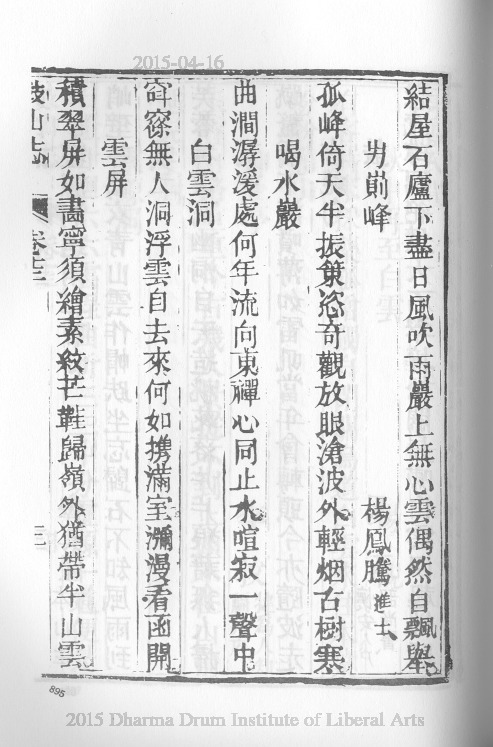 2015-04-16
結屋石廬下盡日風吹雨巖上無心雲偶然自飄舉
男峛峰 楊鳳騰進士
孤峰倚天半振䇿恣奇觀放眼滄波外輕烟古樹寒
喝水巖
曲澗潺湲處何年流向東禪心同止水喧寂一聲中
白雲洞
窅窱無人洞浮雲自去來何如携滿室瀰漫看函開
雲屏
積翠屏如畵寧須繪素紋芒鞋歸嶺外猶帶半山雲
鼓山志 卷十三 三
895
2015 Dharma Drum Institute of Liberal Arts